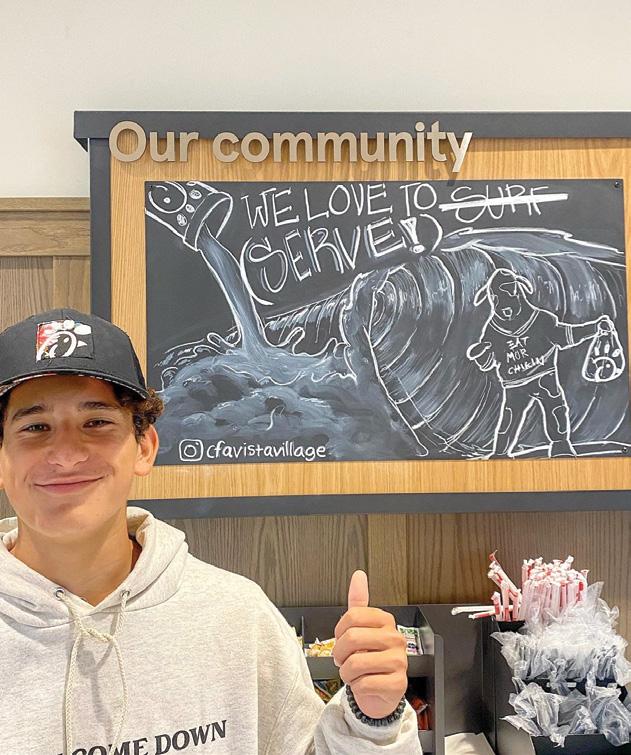 Our community
WE LOVE TO SURF
(SERVE!)
EAT
MOR
CHIKIN
cfavistavillage
COME DOWN